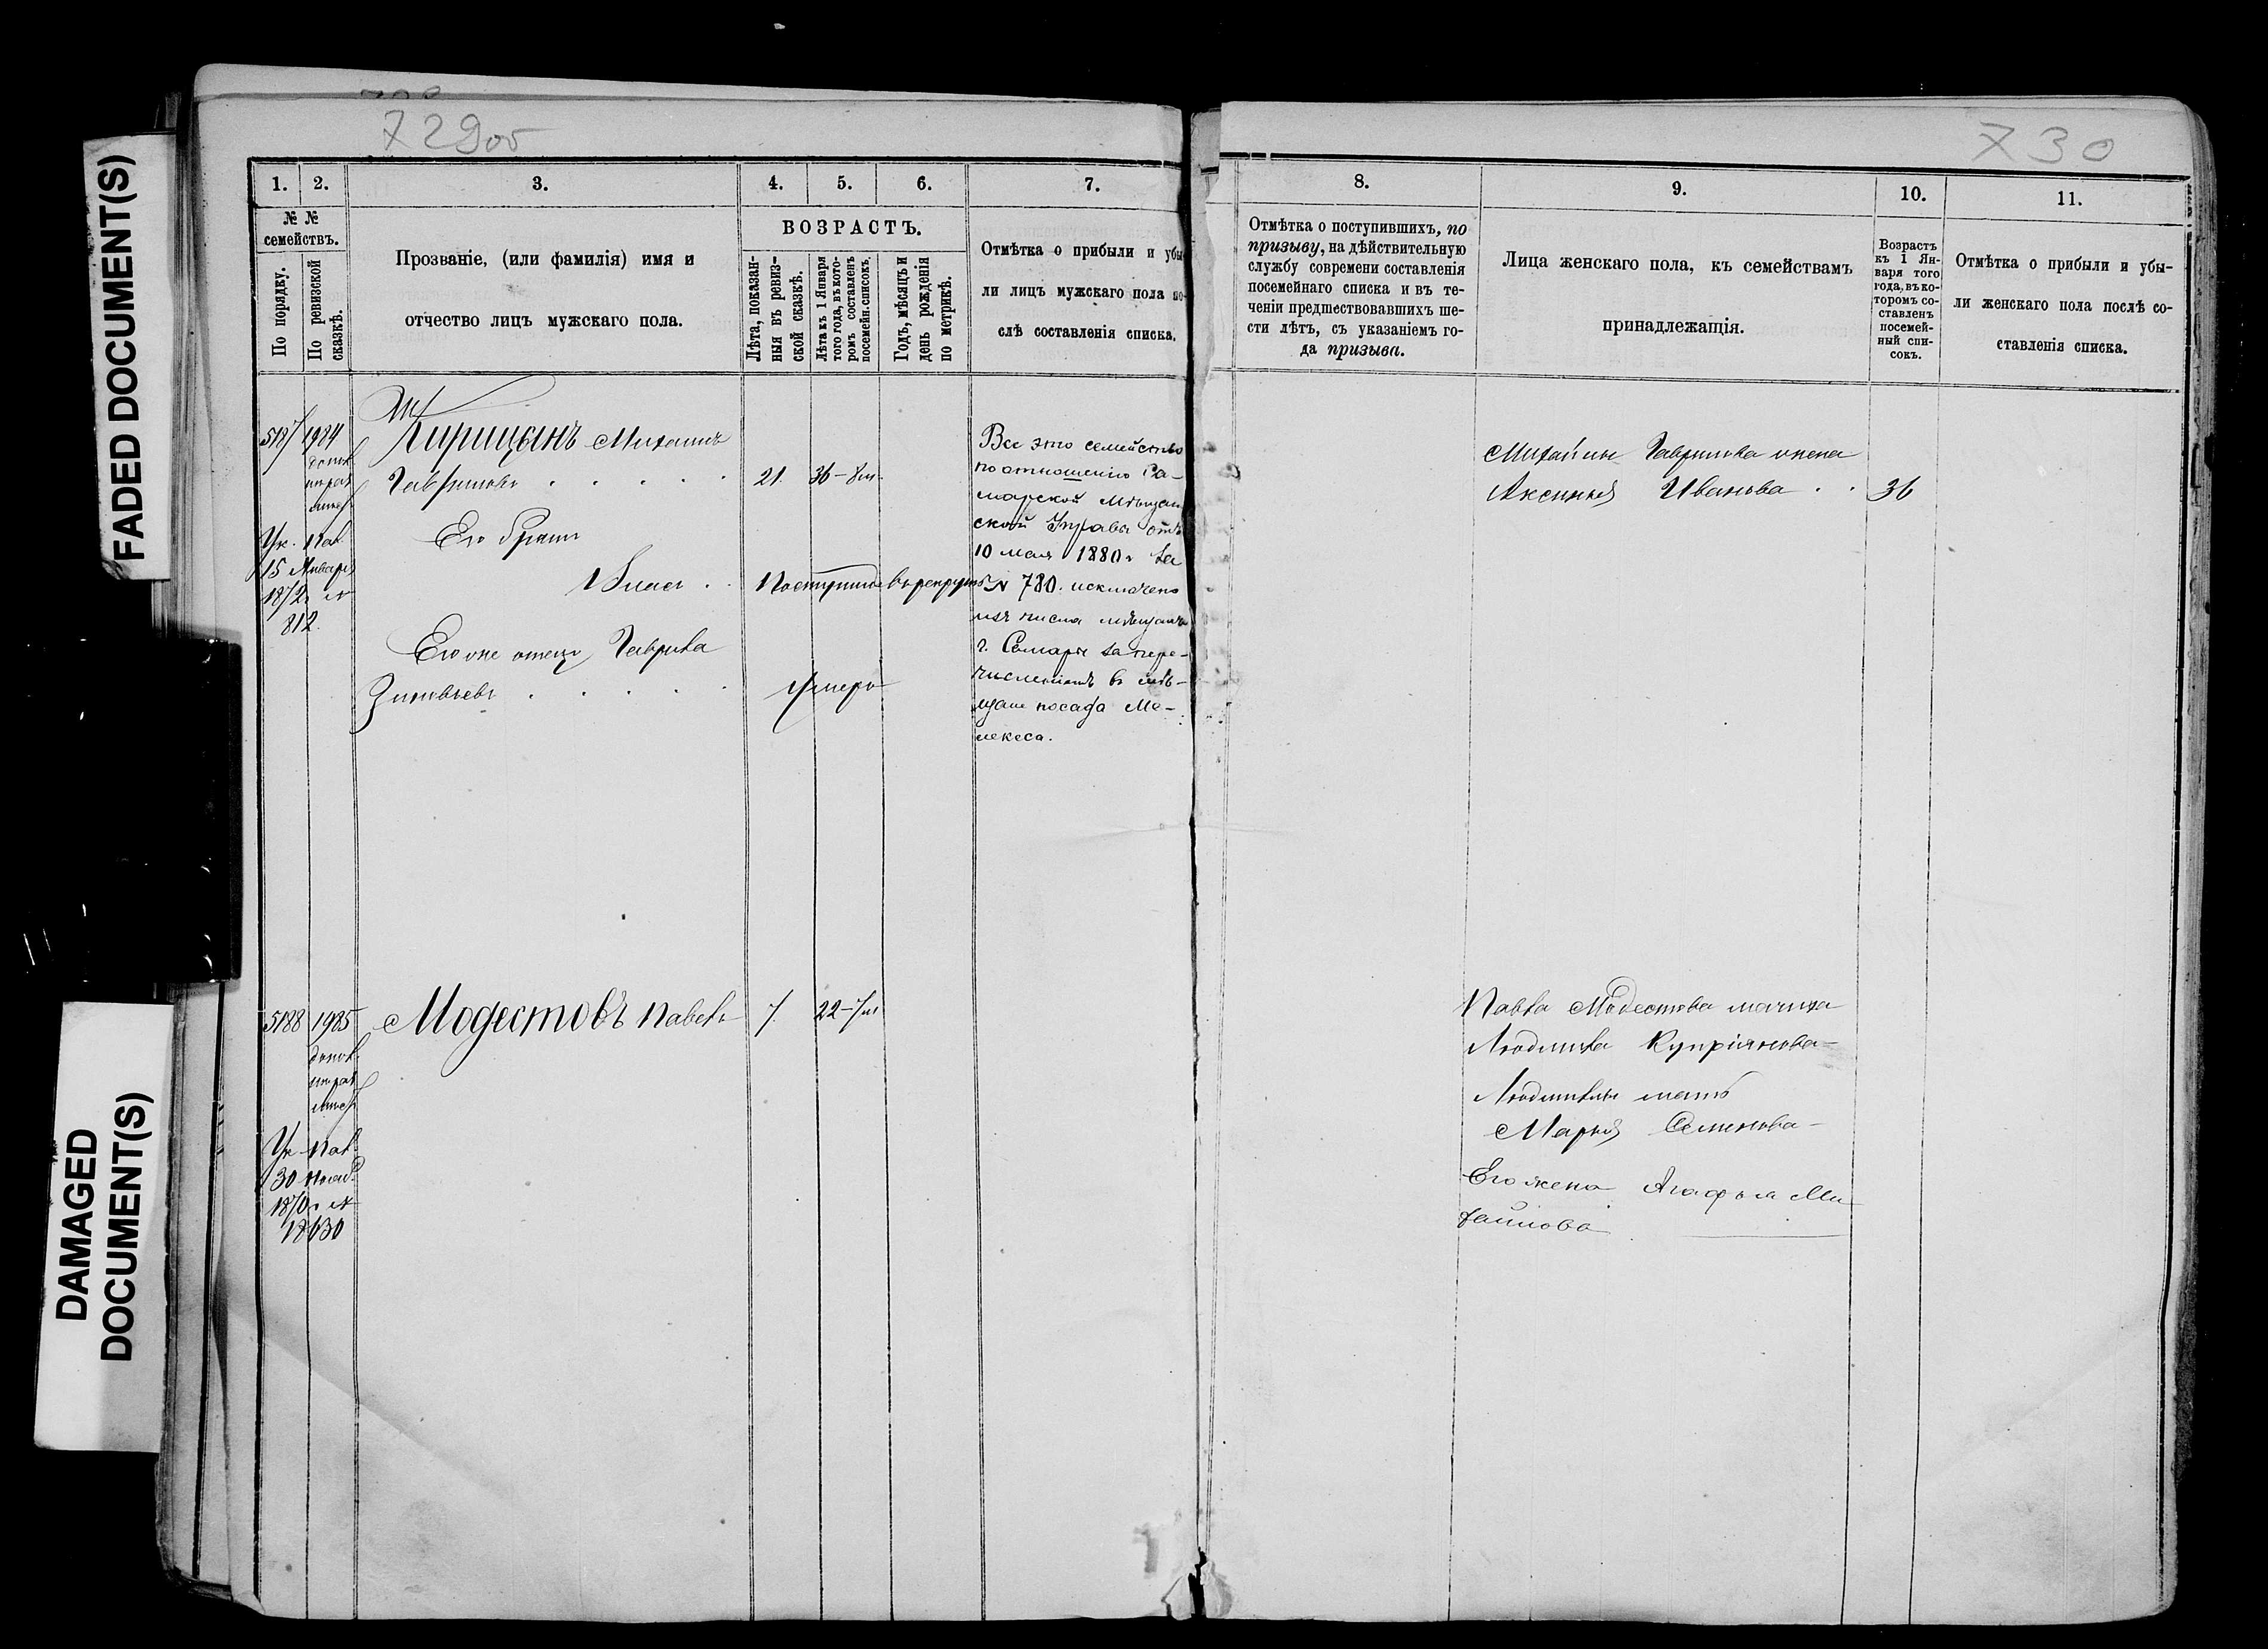 FADED DOCUMENT(S)
DAMAGED
DOCUMENT(S)
729об
1.
2.
3.
4.
5.
6.
7.
№ №
семействъ.
По порядку.
По ревизской
сказкѣ.
Прозваніе, (или фамилія) имя и
отчество лицъ мужскаго пола.
ВОЗРАСТЪ.
Лѣта, показан-
ныя въ ревиз-
ской сказкѣ.
Лѣта къ 1 Января
того года, въ кото-
ромъ составленъ
посемейн. списокъ.
Годъ, мѣсяцъ и
день рожденія
по метрикѣ.
Отмѣтка о прибыли и убы-
ли лицъ мужскаго пола по-
слѣ составленія списка.
5187
1984
Кирицынъ Михаилъ
Гавриловъ . . . . .
21.
36 –
Его братъ
Ук. Каз.
15 Января
1872 г. №
812.
Власъ . .
Поступилъ въ рекруты
Его же отецъ Гаврила
Зиновьевъ . . . . .
умеръ
Все это семейство
по отношенію Са-
марской Мѣщан
ской Управы отъ
10 мая 1880 г. за
№ 780. исключено
изъ числа мѣщанъ
г. Самары за пере-
численіемъ въ мѣ-
щане посада Ме-
лекеса.
5188
1985
Модестовъ Павелъ
7.
22 –
Ук. Каз.
30 Нояб.
1870 г. №
18630
730
8.
9.
10.
11.
Отмѣтка о поступившихъ, по
призыву, на дѣйствительную
службу современи составленія
посемейнаго списка и въ те-
ченіи предшествовавшихъ ше-
сти лѣтъ, съ указаніемъ го-
да призыва.
Лица женскаго пола, къ семействамъ
принадлежащія.
Возрастъ
къ 1 Ян-
варя того
года, въ ко-
торомъ со-
ставленъ
посемей-
ный спи-
сокъ.
Отмѣтка о прибыли и убы-
ли женскаго пола послѣ со-
ставленія списка.
Михайлы Гаврилова жена
Аксинья Иванова . . 36
Павла Модестова мачиха
Людмила Купріянова –
Людмилы мать
Марья Семенова –
Его жена Агафья Ми
хайлова